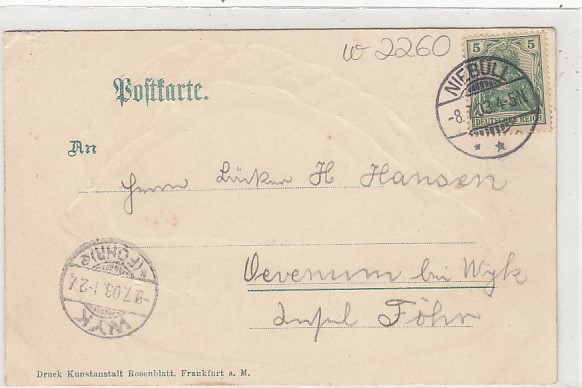 w 2260
5 5
DEUTSCHES REICH
NIEBÜLL
4-5N
Postkarte.
An
Herrn Bäcker H. Hansen
Oevenum bei Wyk
Insel Föhr
WYK
9.7.03. 1-2N
*(FÖHR)*
Druck Kunstanstalt Rosenblatt, Frankfurt a. M.